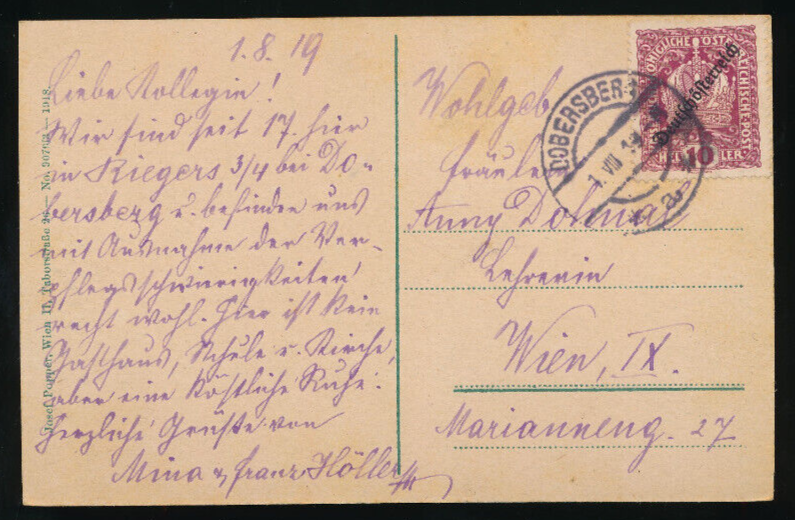 1.8.19
Liebe Kollegin!
Wir sind seit 17. hier
in Riegers 3/4 bei Do-
bersberg u. befinden uns
mit Ausnahme der Ver-
pflegsschwierigkeiten
recht wohl. Hier ist kein
Gasthaus, Schule u. Kirche,
aber eine köstliche Ruhe.
Herzliche Grüße von
Mina u. Franz Höller
Josef Popper, Wien II, Taborstraße — No. — 1918.
Wohlgeb.
Fräulein
Anny Dolmar
Lehrerin
Wien, IX.
Marianneng. 27
DOBERSBERG
1. VIII 19
a
Deutschösterreich
HELLER
10